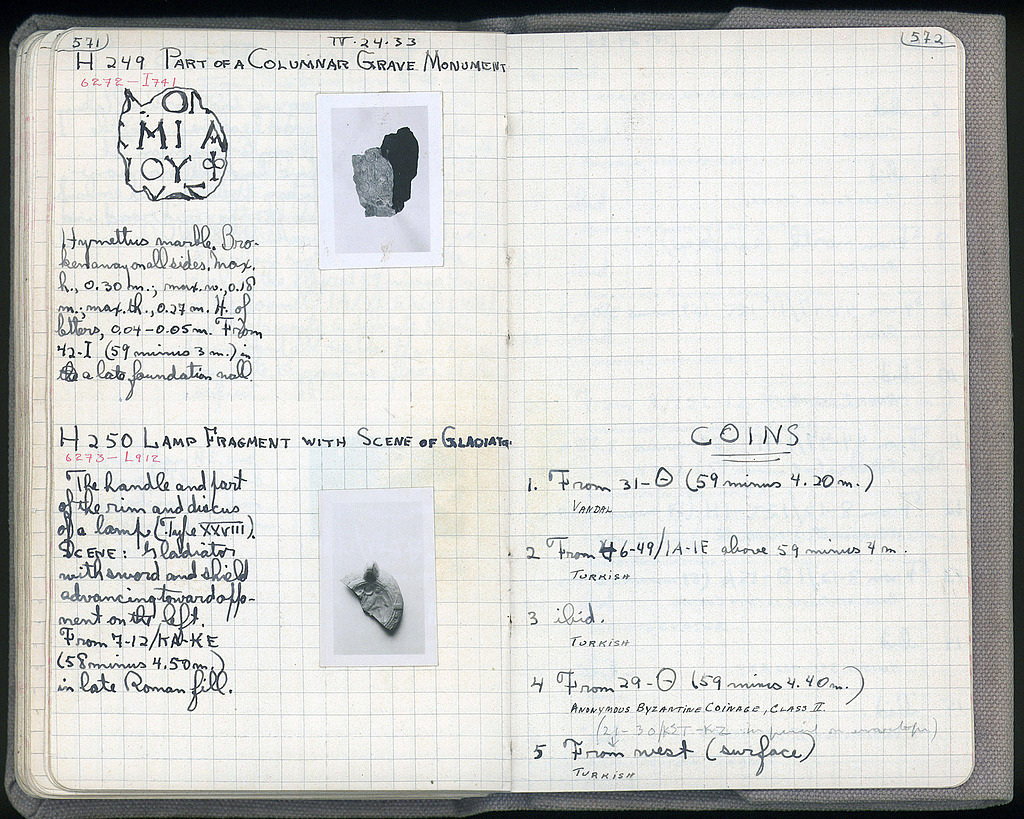 571
IV-24-33
H 249 PART OF A COLUMNAR GRAVE MONUMENT
6272-I741
ΜΙΑ
ΙΟΥ
Hymettus marble. Bro-
ken away on all sides. Max.
h., 0.30 m.; max. w., 0.18
m.; max. th., 0.27 m. H. of
letters, 0.04-0.05 m. From
42-I (59 minus 3 m.) in
a late foundation wall.
H 250 LAMP FRAGMENT WITH SCENE OF GLADIATOR
6273-L912
The handle and part
of the rim and discus
of a lamp (Type XXVIII).
SCENE: Gladiator
with sword and shield
advancing toward oppo-
nent on the left.
From 7-12/ΚΑ-ΚΕ
(58 minus 4.50 m.)
in late Roman fill.
572
COINS
1. From 31-Θ (59 minus 4.20 m.)
VANDAL
2 From 46-49/ΙΑ-ΙΕ above 59 minus 4 m.
TURKISH
3 ibid.
TURKISH
4 From 29-Θ (59 minus 4.40 m.)
ANONYMOUS BYZANTINE COINAGE, CLASS II.
(21-30/ΚΣΤ-ΚΖ in pencil on envelope)
5 From west (surface)
TURKISH